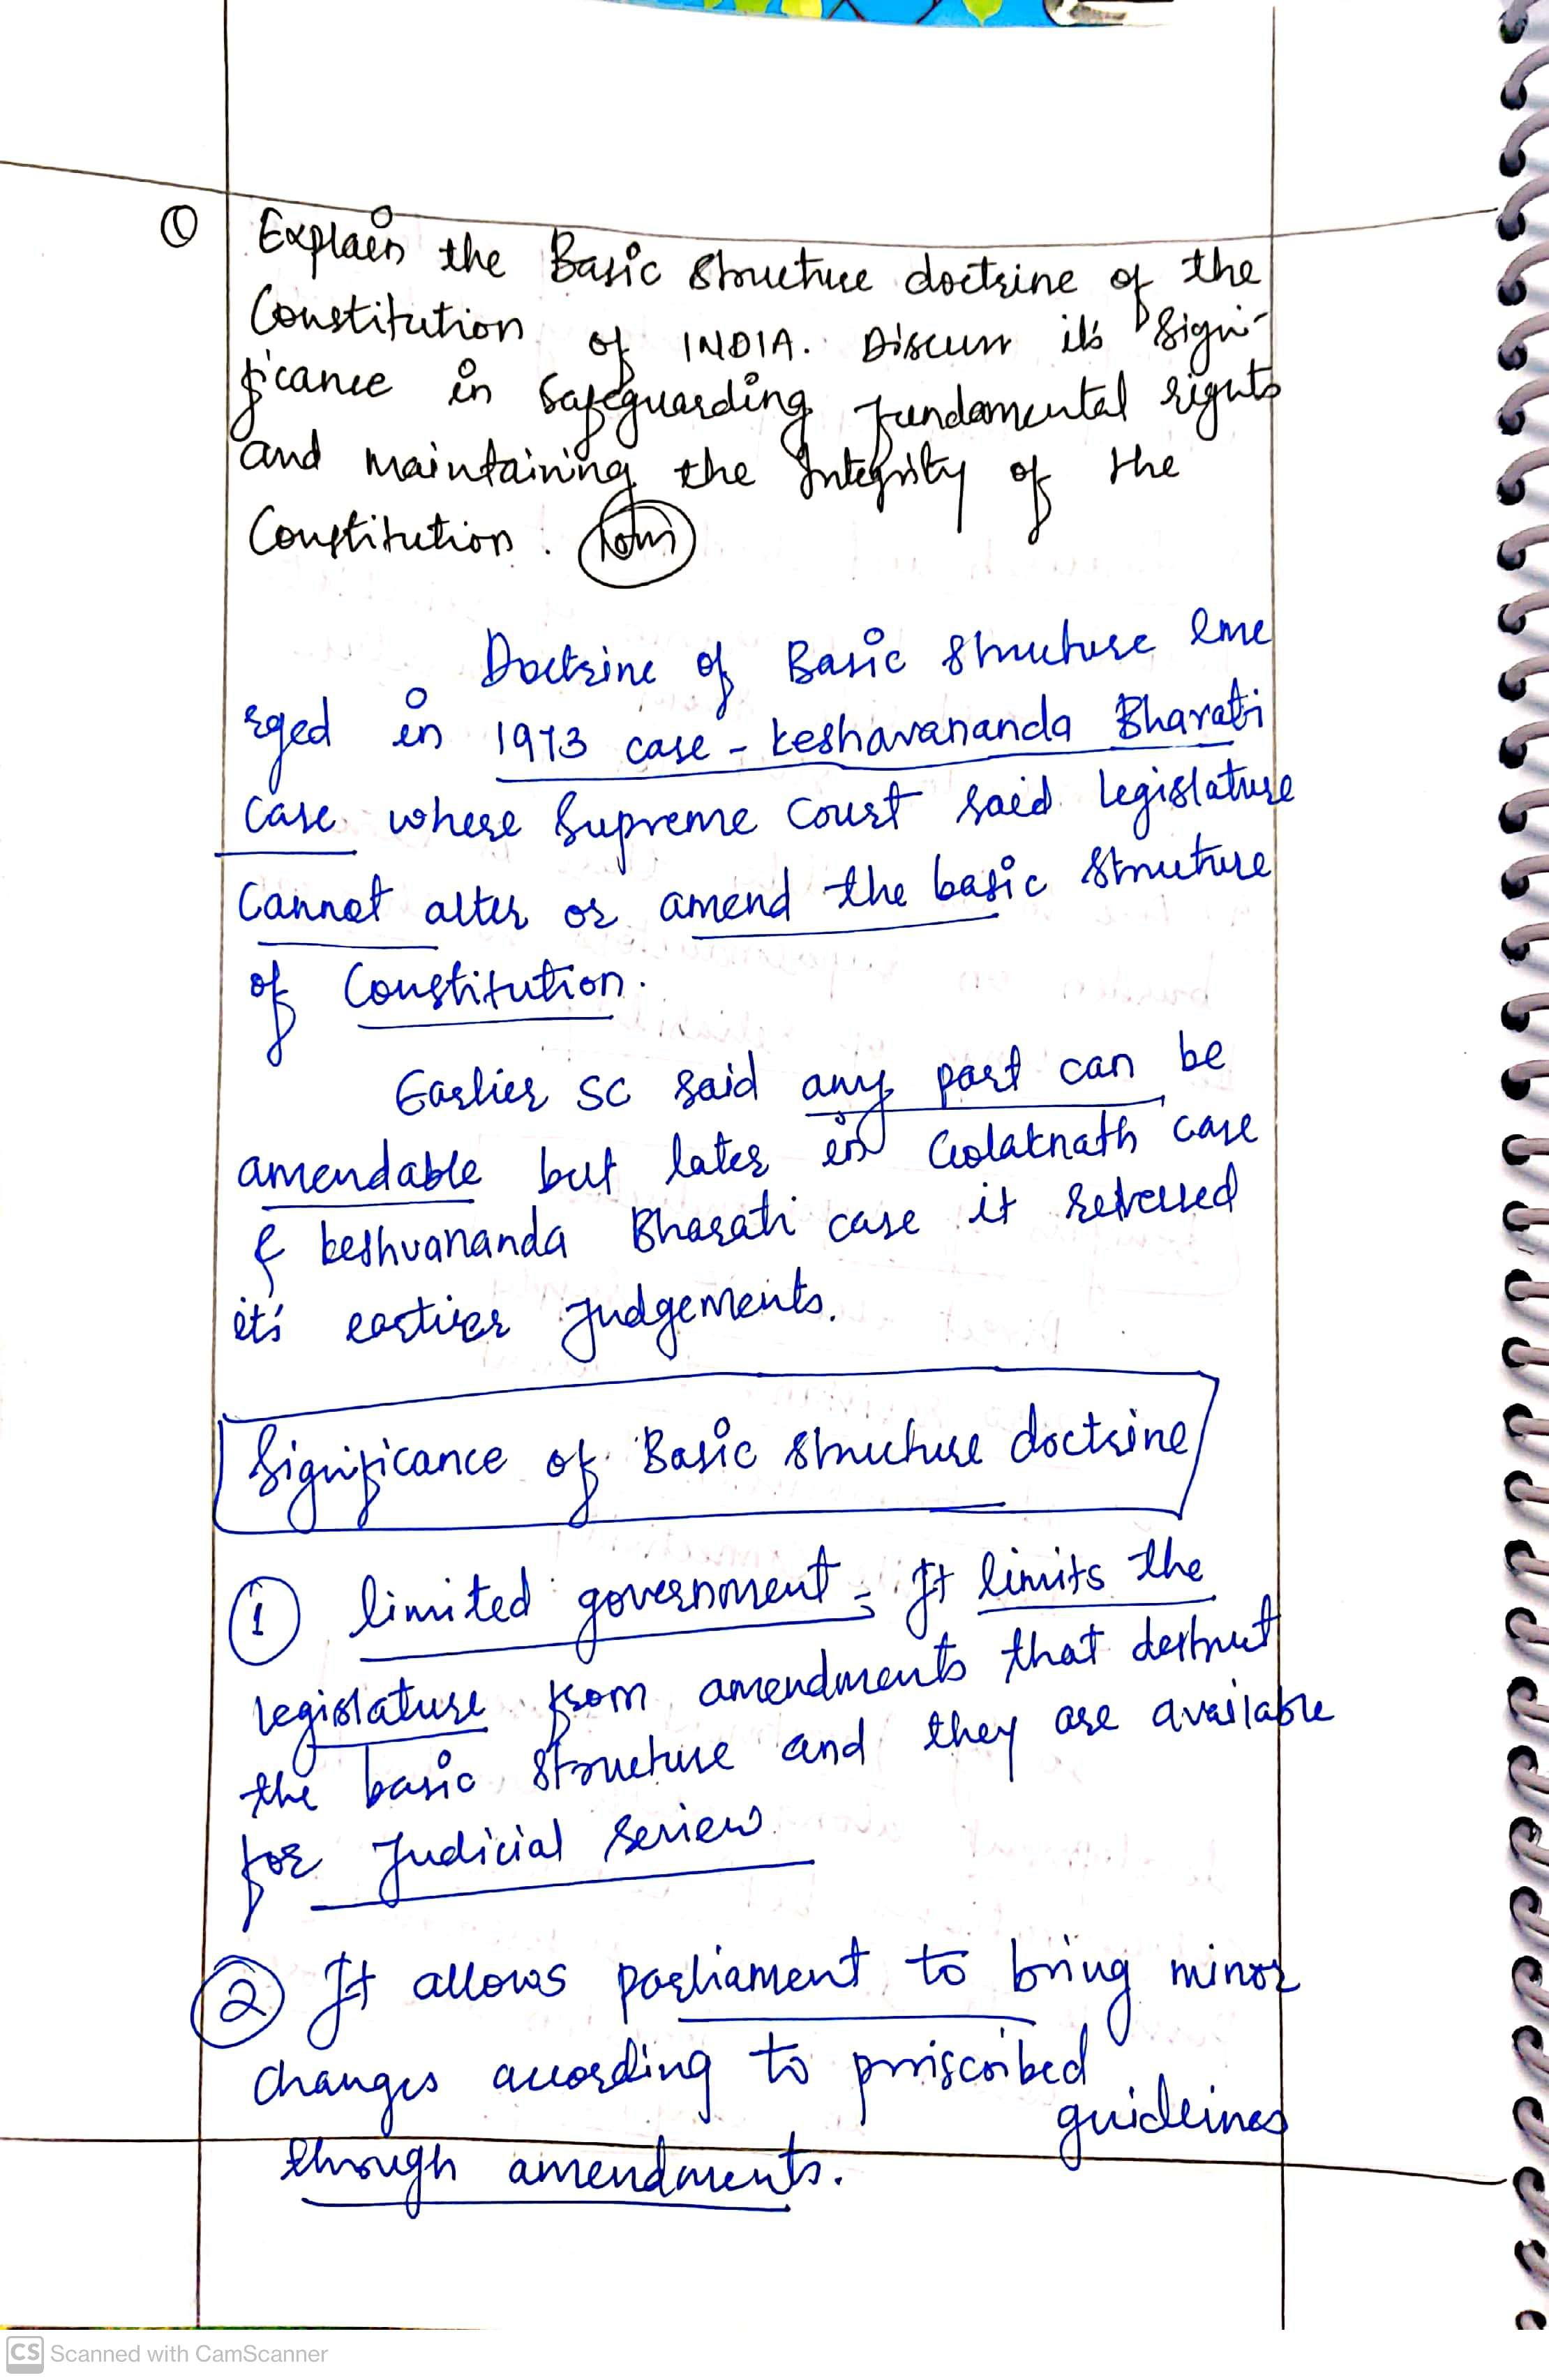 Q Explain the Basic structure doctrine of the
Constitution of INDIA. Discuss its Signi-
ficance in Safeguarding fundamental rights
and maintaining the Integrity of the
Constitution.
Doctrine of Basic Structure eme
rged in 1973 case - keshavananda Bharati
case where Supreme Court said legislature
cannot alter or amend the basic structure
of Constitution.
Earlier SC said any part can be
amendable but later in Golaknath case
& keshvananda Bharati case it reversed
it's earlier judgements.
Significance of Basic structure doctrine
① limited government = It limits the
legislature from amendments that destruct
the basic structure and they are available
for Judicial review
② It allows parliament to bring minor
changes according to priscribed
guidelines
through amendments.
CS Scanned with CamScanner